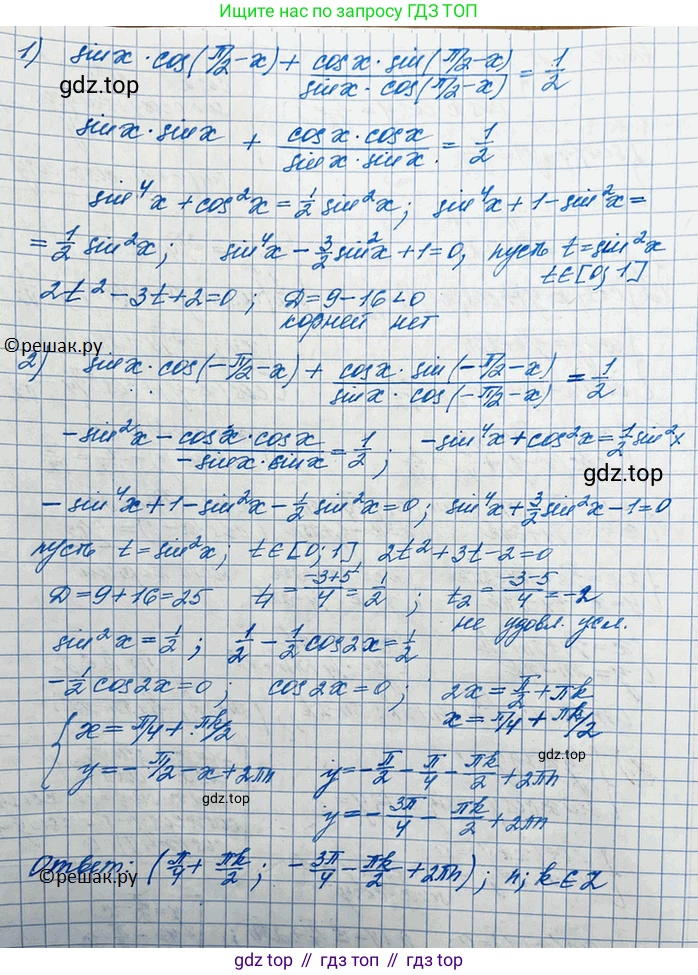 Присоединяйся к сообществу ГДЗ ТОП
1) sinx · cos(π/2 - x) + cosx · sin(π/2 - x) / sinx · cos(π/2 - x) = 1/2
gdz.top
sinx · sinx + cosx · cosx / sinx · sinx = 1/2
sin⁴x + cos²x = 1/2 sin²x; sin⁴x + 1 - sin²x =
= 1/2 sin²x; sin⁴x - 3/2 sin²x + 1 = 0, пусть t = sin²x
t ∈ [0; 1]
2t² - 3t + 2 = 0; D = 9 - 16 < 0
корней нет
©решак.ру
2) sinx · cos(-π/2 - x) + cosx · sin(-π/2 - x) / sinx · cos(-π/2 - x) = 1/2
-sin²x - cosx · cosx / -sinx · sinx = 1/2; -sin⁴x + cos²x = 1/2 sin²x
gdz.top
-sin⁴x + 1 - sin²x - 1/2 sin²x = 0; sin⁴x + 3/2 sin²x - 1 = 0
пусть t = sin²x; t ∈ [0; 1] 2t² + 3t - 2 = 0
D = 9 + 16 = 25 t₁ = -3+5/4 = 1/2; t₂ = -3-5/4 = -2
не удовл. усл.
sin²x = 1/2; 1/2 - 1/2 cos2x = 1/2
-1/2 cos2x = 0; cos2x = 0; 2x = π/2 + πk
x = π/4 + πk/2
{ x = π/4 + πk/2
y = -π/2 - x + 2πn y = -π/2 - π/4 - πk/2 + 2πn
gdz.top
gdz.top
y = -3π/4 - πk/2 + 2πn
Ответ: (π/4 + πk/2; -3π/4 - πk/2 + 2πn); n; k ∈ Z
©решак.ру
gdz.top // гдз.топ